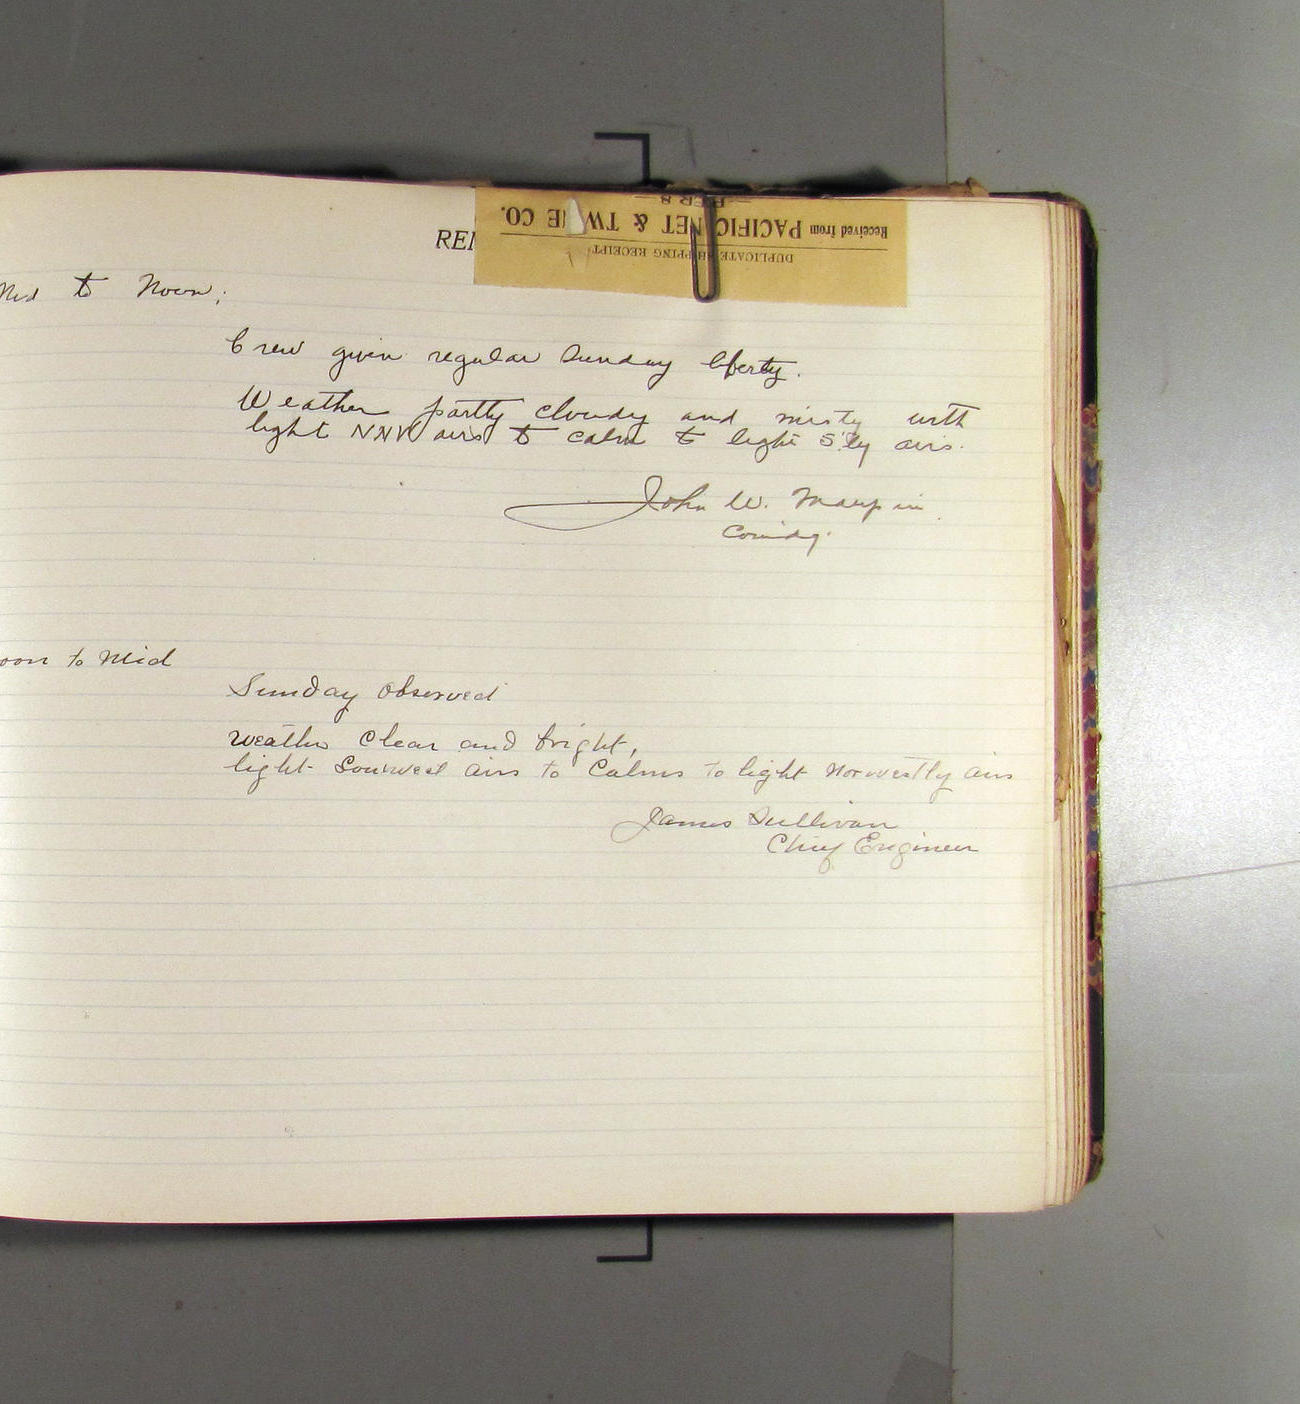 REM
PER S
Received from PACIFIC NET & TWINE CO.
DUPLICATE SHIPPING RECEIPT
Mid to Noon;
Crew given regular Sunday liberty.
Weather partly cloudy and misty with
light NNW airs to calm to light S'ly airs.
John W. Maupin
Comdg.
oon to Mid
Sunday observed
Weather Clear and bright,
light Souwest airs to Calms to light Norwestly airs
James Sullivan
Chief Engineer